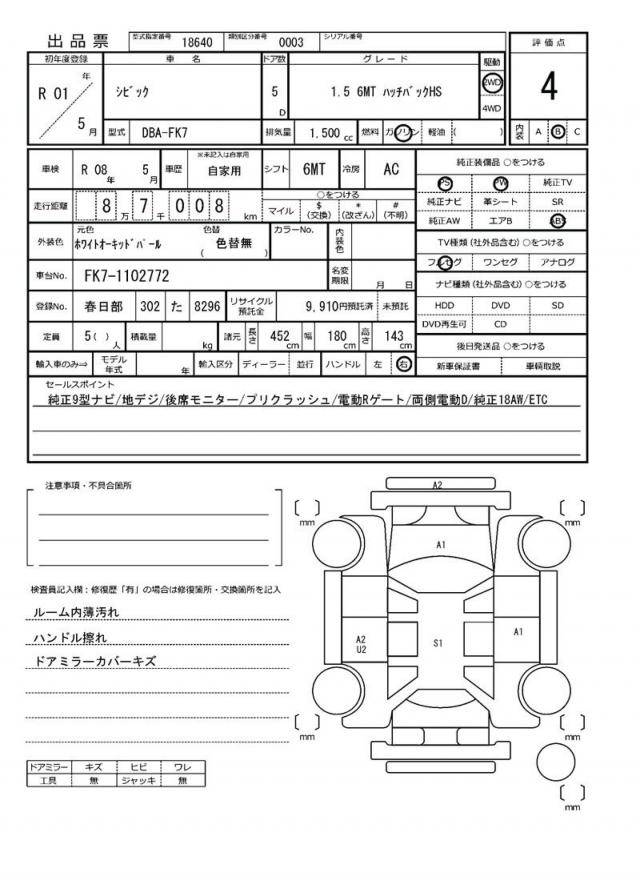 出品票 型式指定番号 18640 類別区分番号 0003 シリアル番号
評価点
4
初年度登録 車名 ドア数 グレード 駆動
R 01 年 5 月 シビック 5 D 1.5 6MT ハッチバックHS 2WD 4WD
型式 DBA-FK7 排気量 1.500 cc 燃料 ガソリン 軽油 ( )
内装 A B C
車検 R 08 年 5 月 車歴 ※未記入は自家用 自家用 シフト 6MT 冷房 AC
走行距離 8 万 7 千 0 0 8 km
○をつける
マイル $ (交換) * (改ざん) # (不明)
外装色 元色 ホワイトオーキッドパール 色替 ( 色替無 ) カラーNo. 内装色
車台No. FK7-1102772 名変期限 月 日
登録No. 春日部 302 た 8296 リサイクル預託金 9,910円預託済 未預託
定員 5( ) 人 積載量 kg 諸元 長さ 452 cm 幅 180 cm 高さ 143 cm
輸入車のみ⇒ モデル年式 年 輸入区分 ディーラー 並行 ハンドル 左 右
純正装備品 ○をつける
PS PW 純正TV
純正ナビ 革シート SR
純正AW エアB ABS
TV種類 (社外品含む) ○をつける
フルセグ ワンセグ アナログ
ナビ種類 (社外品含む) ○をつける
HDD DVD SD
DVD再生可 CD
後日発送品 ○をつける
新車保証書 車輌取説
セールスポイント
純正9型ナビ/地デジ/後席モニター/プリクラッシュ/電動Rゲート/両側電動D/純正18AW/ETC
注意事項・不具合箇所
検査員記入欄：修復歴「有」の場合は修復箇所・交換箇所を記入
ルーム内薄汚れ
ハンドル擦れ
ドアミラーカバーキズ
ドアミラー キズ ヒビ ワレ
工具 無 ジャッキ 無
A2
[ ] mm [ ] mm
A1
A2
U2
S1
A1
[ ] mm [ ] mm
[ ] mm